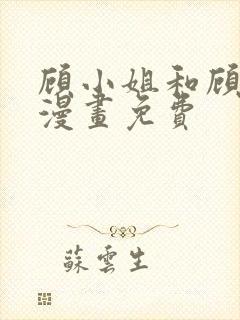 顾小姐和顾
漫畫免費
蘇雲生